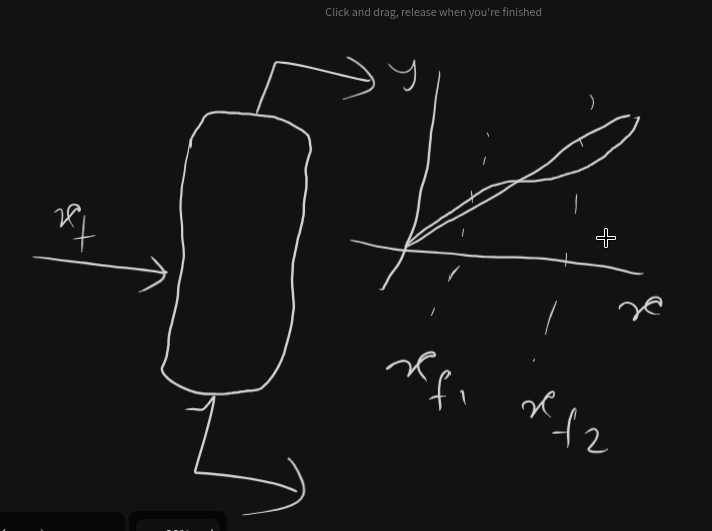 Click and drag, release when you're finished
y
x_f
x
x_f1
x_f2